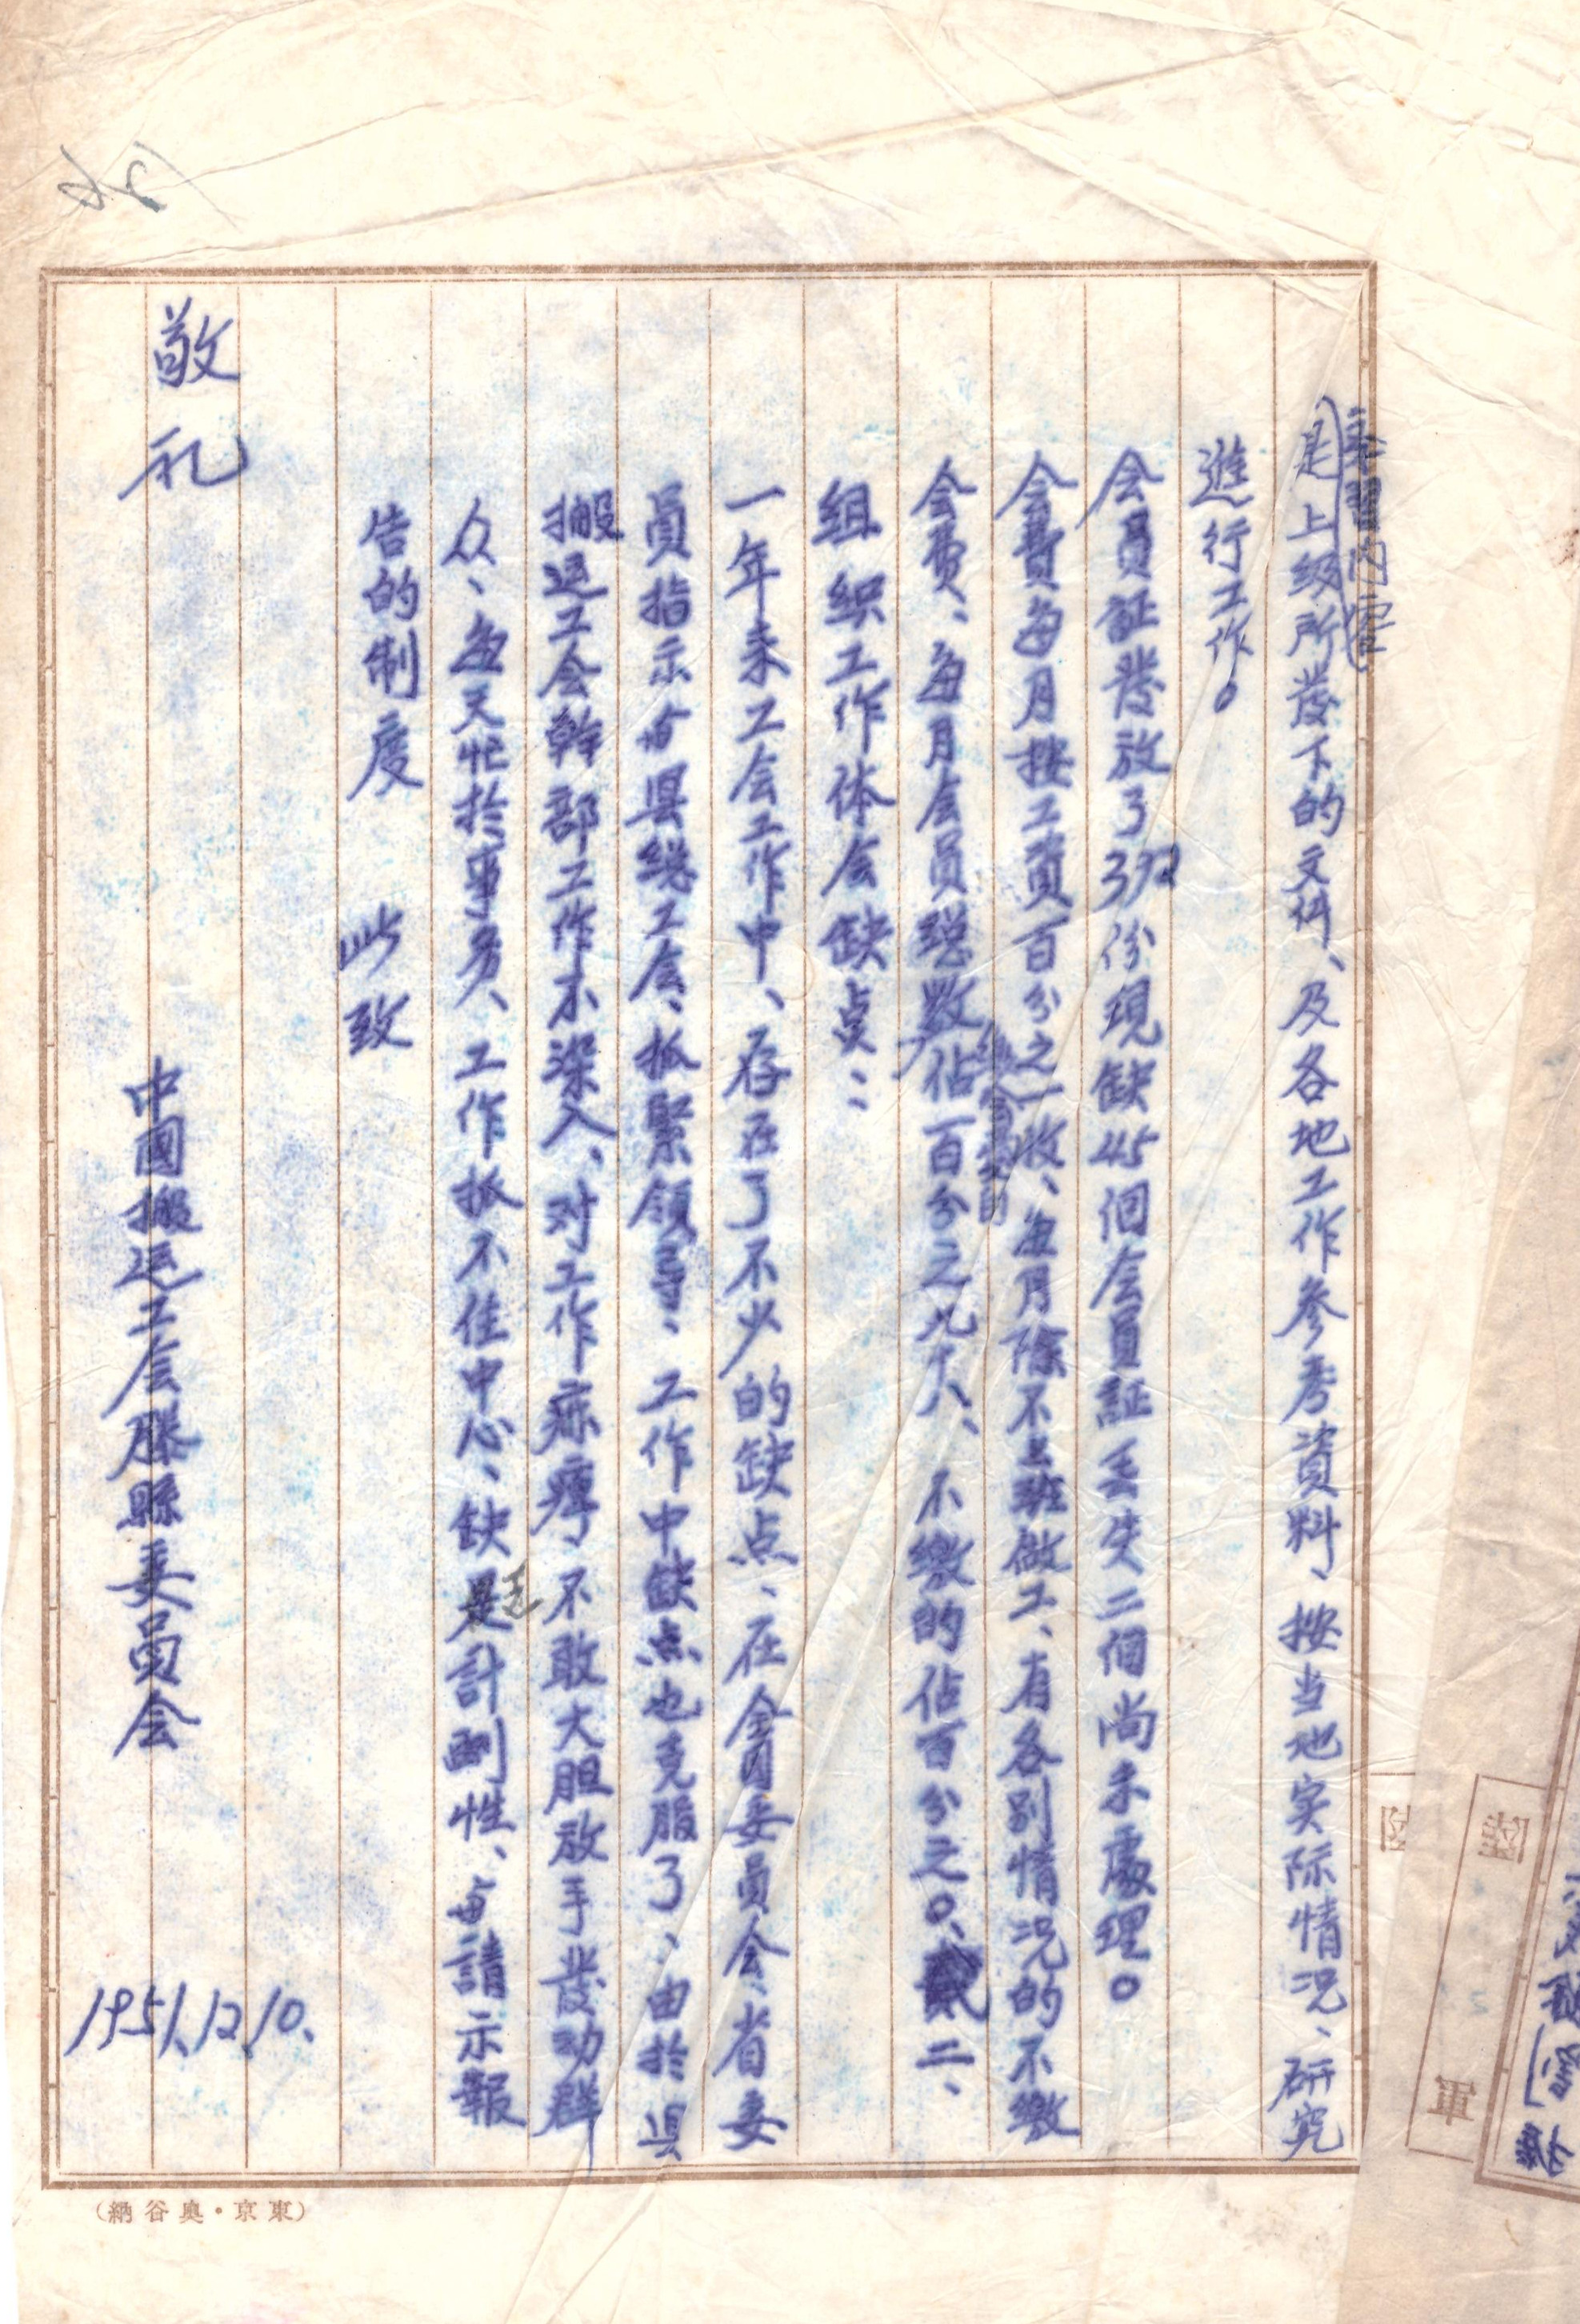 是上级所發下的文件、及各地工作参考資料、按当地实际情况、研究
進行工作。
会員証發放了392份現缺45個会員証丢失二個尚未處理。
会費每月按工資百分之一收、每月除不上班做工、有各别情况的不繳
会费、每月会员總数佔百分之九十八、不繳的佔百分之0、二、
组织工作体会缺点：
一年来工会工作中、存在了不少的缺点、在會員委員会、省委
員指示与县總工会、抓緊領导、工作中缺点也克服了、由於县
搬运工会幹部工作不深入、对工作麻痺、不敢大胆放手發动群
众、每天忙於事务、工作抓不住中心、缺乏計劃性、与請示報
告的制度 此致
敬礼
中國搬运工会滕縣委員会
1951.12.10.
（納谷奥・京東）
陸
軍